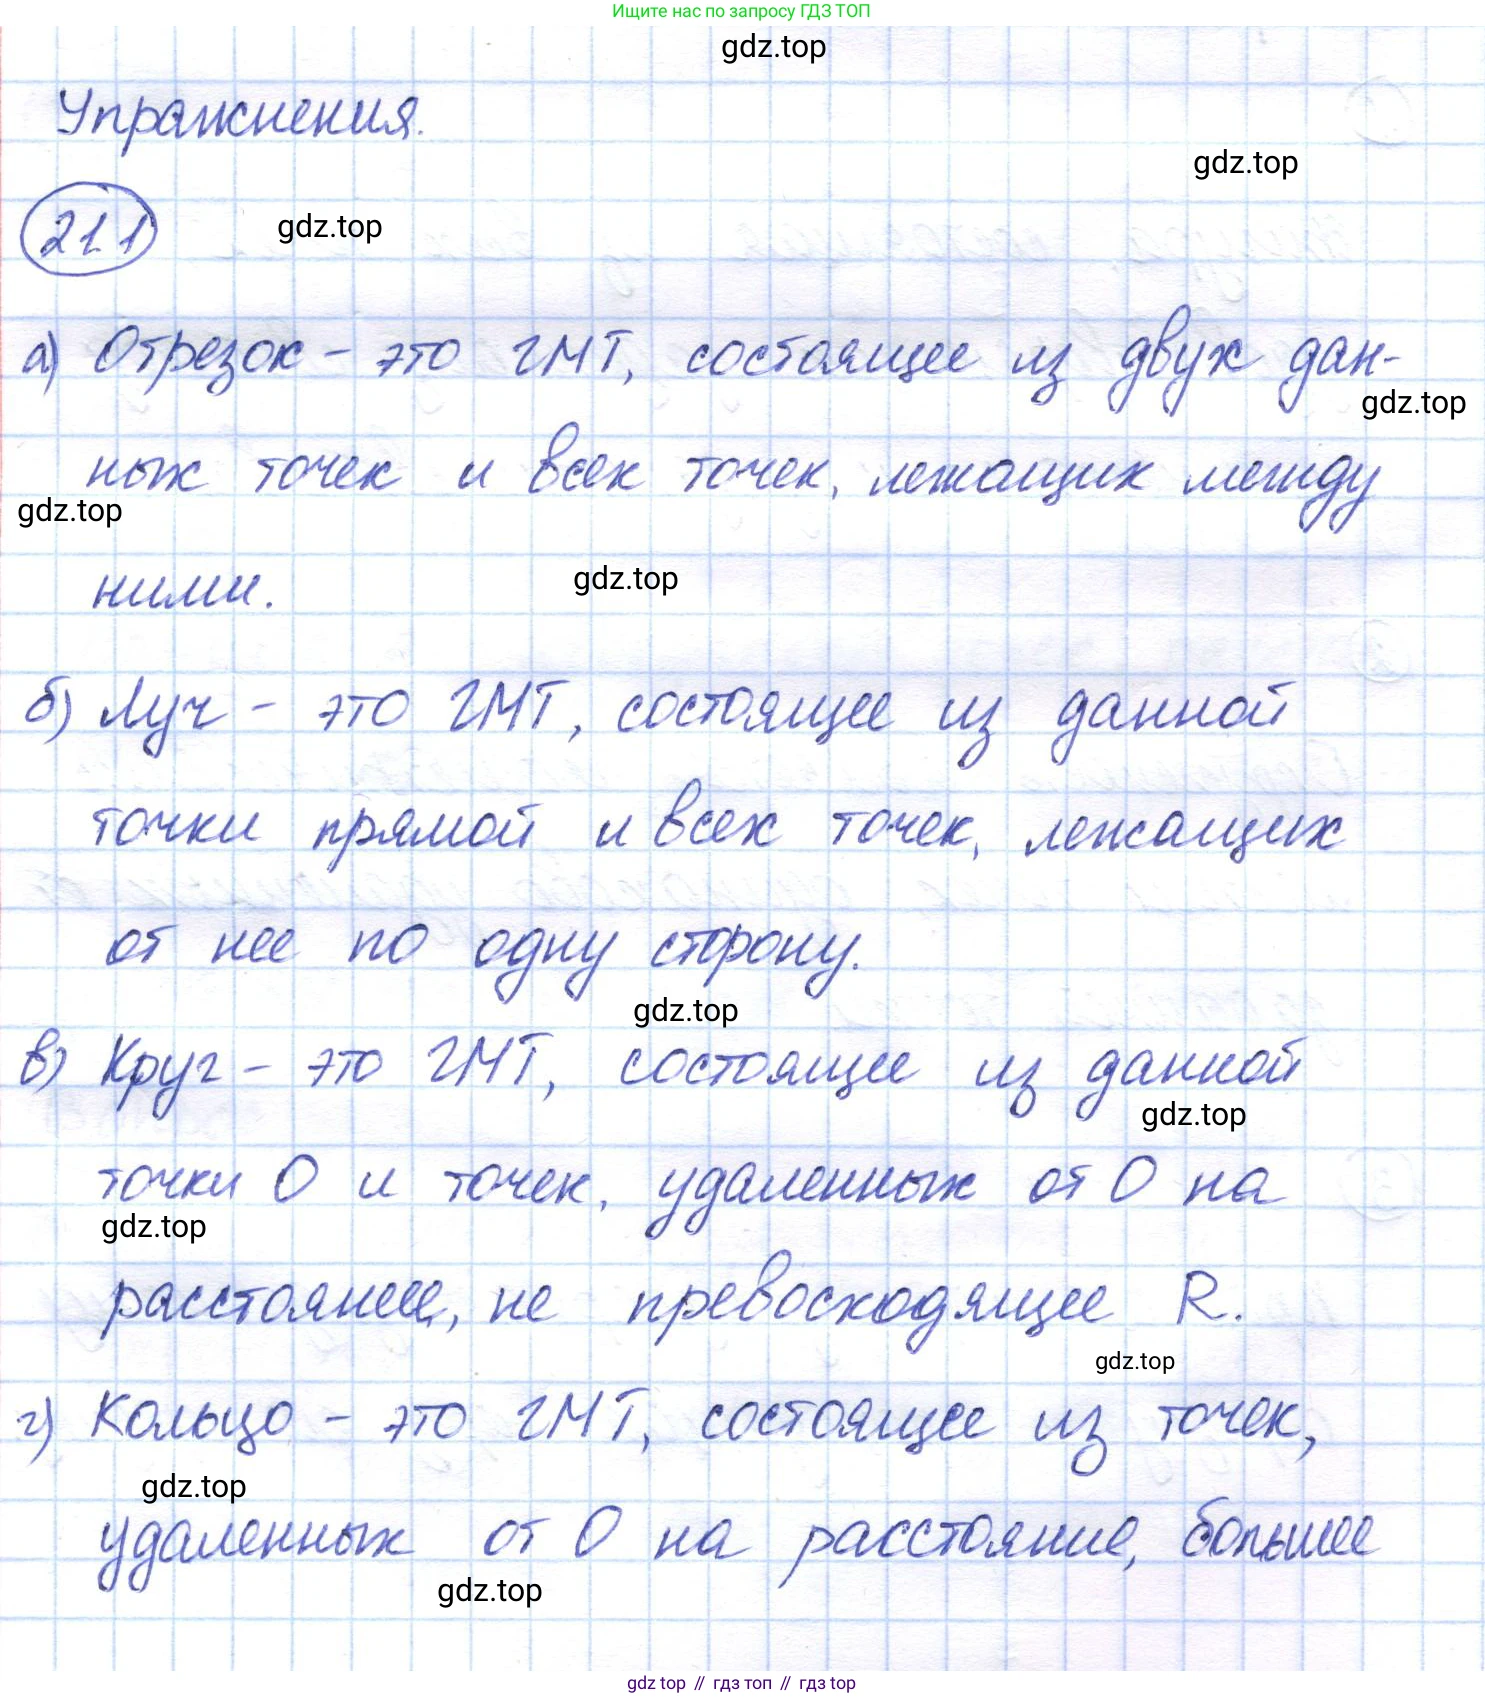 Ищите нас по запросу ГДЗ ТОП
gdz.top
Упражнения.
gdz.top
21.1
gdz.top
а) Отрезок - это ГМТ, состоящее из двух дан-
gdz.top
ных точек и всех точек, лежащих между
gdz.top
ними.
gdz.top
б) Луч - это ГМТ, состоящее из данной
точки прямой и всех точек, лежащих
от нее по одну сторону.
gdz.top
в) Круг - это ГМТ, состоящее из данной
gdz.top
точки О и точек, удаленных от О на
gdz.top
расстояние, не превосходящее R.
gdz.top
г) Кольцо - это ГМТ, состоящее из точек,
gdz.top
удаленных от О на расстояние, большее
gdz.top
gdz top // гдз топ // гдз top